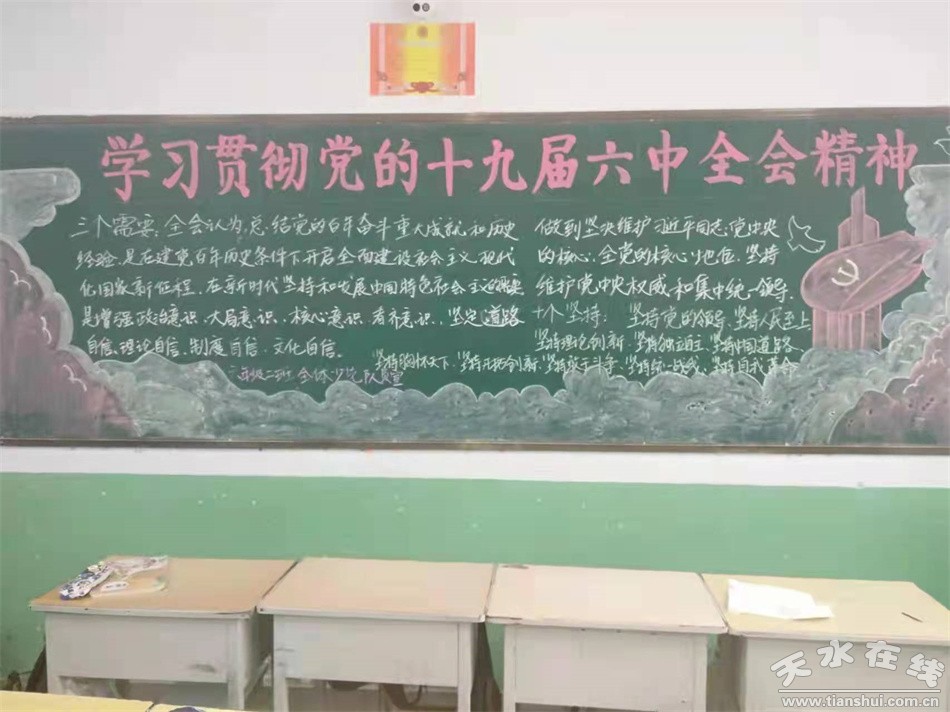 学习贯彻党的十九届六中全会精神
三个需要:全会认为,总结党的百年奋斗重大成就和历史
经验,是在建党百年历史条件下开启全面建设社会主义现代
化国家新征程,在新时代坚持和发展中国特色社会主义的需要
是增强政治意识、大局意识、核心意识、看齐意识,坚定道路
自信、理论自信、制度自信、文化自信。
做到坚决维护习近平同志党中央
的核心、全党的核心地位,坚持
维护党中央权威和集中统一领导,
十个坚持: 坚持党的领导、坚持人民至上
坚持理论创新、坚持独立自主、坚持中国道路
坚持胸怀天下、坚持开拓创新、坚持敢于斗争、坚持统一战线、坚持自我革命
二班全体少先队员宣
天水在线
www.tianshui.com.cn